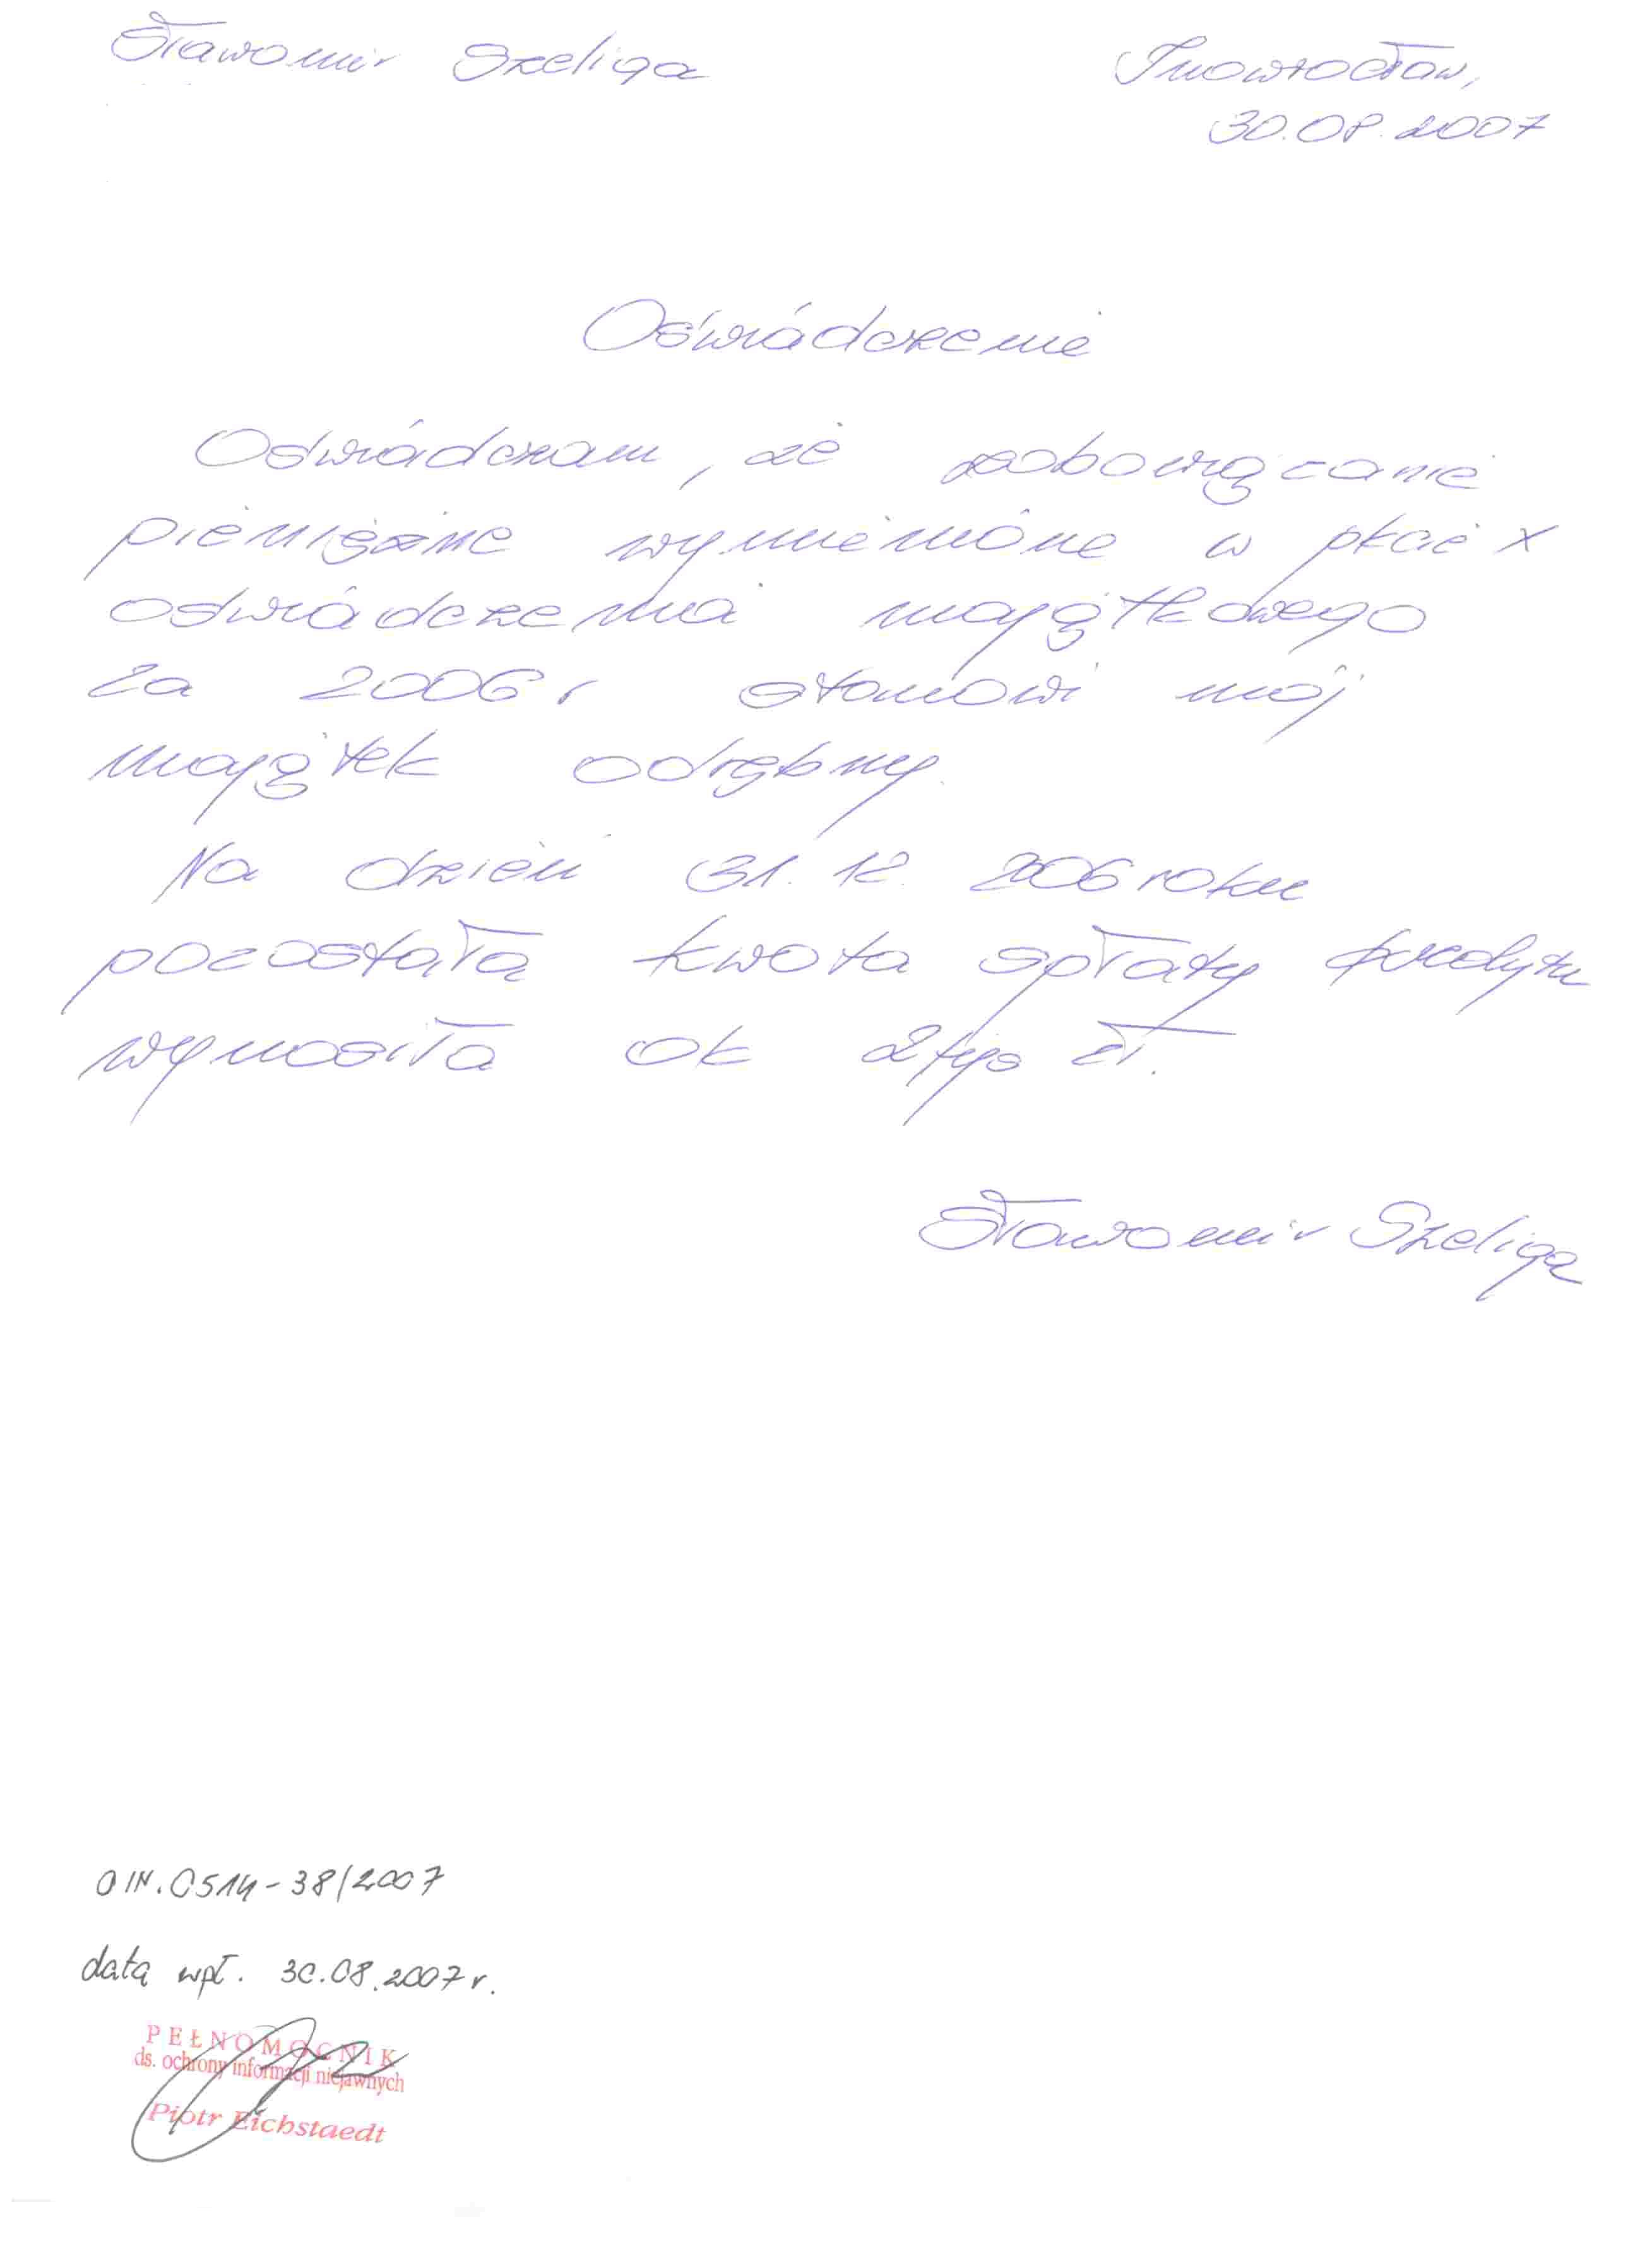 Sławomir Szeliga
Inowrocław,
30.08.2007
Oświadczenie
Oświadczam, że zobowiązanie
pieniężne wymienione w pkcie X
oświadczenia majątkowego
za 2006 r stanowi mój
majątek odrębny.
Na dzień 31.12.2006 roku
pozostała kwota spłaty kredytu
wynosiła ok 2 tys zł.
Sławomir Szeliga
OIN.0514-38/2007
data wpł. 30.08.2007 r.
PEŁNOMOCNIK
ds. ochrony informacji niejawnych
Piotr Eichstaedt